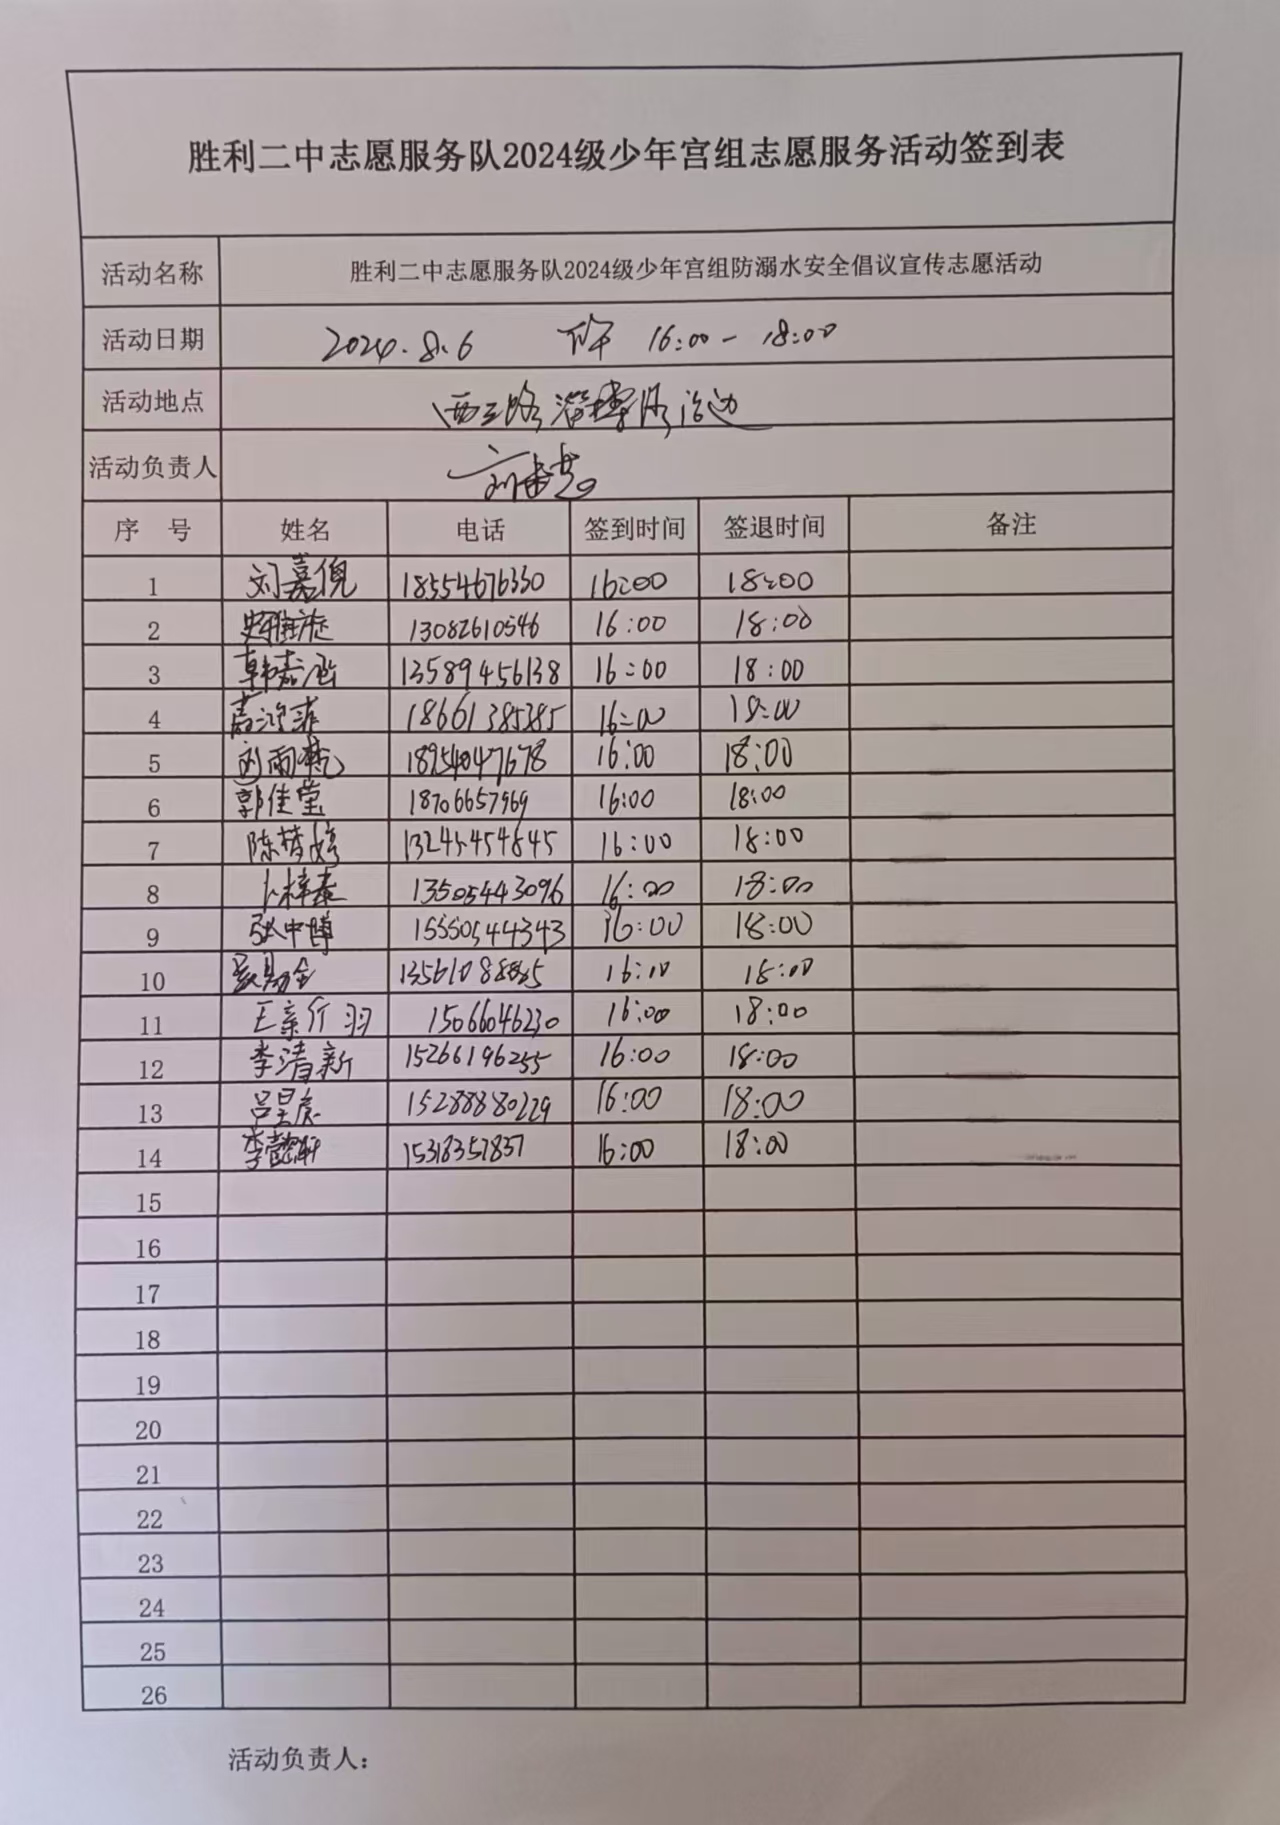 胜利二中志愿服务队2024级少年宫组志愿服务活动签到表
活动名称 胜利二中志愿服务队2024级少年宫组防溺水安全倡议宣传志愿活动
活动日期 2024.8.6 下午 16:00-18:00
活动地点 西三路
活动负责人 刘
序 号 姓名 电话 签到时间 签退时间 备注
1 刘嘉倪 18554676330 16:00 18:00
2 13082610546 16:00 18:00
3 韩嘉涵 13589456138 16:00 18:00
4 18661385285 16:00 18:00
5 刘雨 18954047678 16:00 18:00
6 郭佳莹 18706657969 16:00 18:00
7 陈梦婷 16:00 18:00
8 卜梓泰 13505443096 16:00 18:00
9 张中博 15550544343 16:00 18:00
10 16:10 18:00
11 王亲行羽 15066046230 16:00 18:00
12 李清新 15266196255 16:00 18:00
13 吕昱辰 15288880229 16:00 18:00
14 李懿轩 15318351837 16:00 18:00
15
16
17
18
19
20
21
22
23
24
25
26
活动负责人：